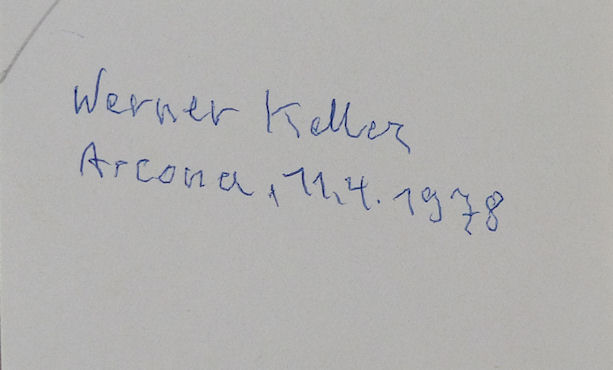 Werner Keller
Arcona, 11.4.1978